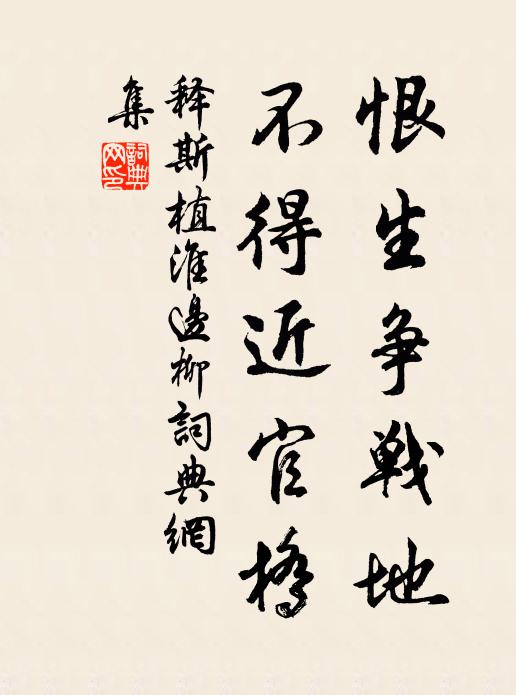 恨生争戦地
不得近官橋
释斯植淮邊柳詞典網
集
詞典網印